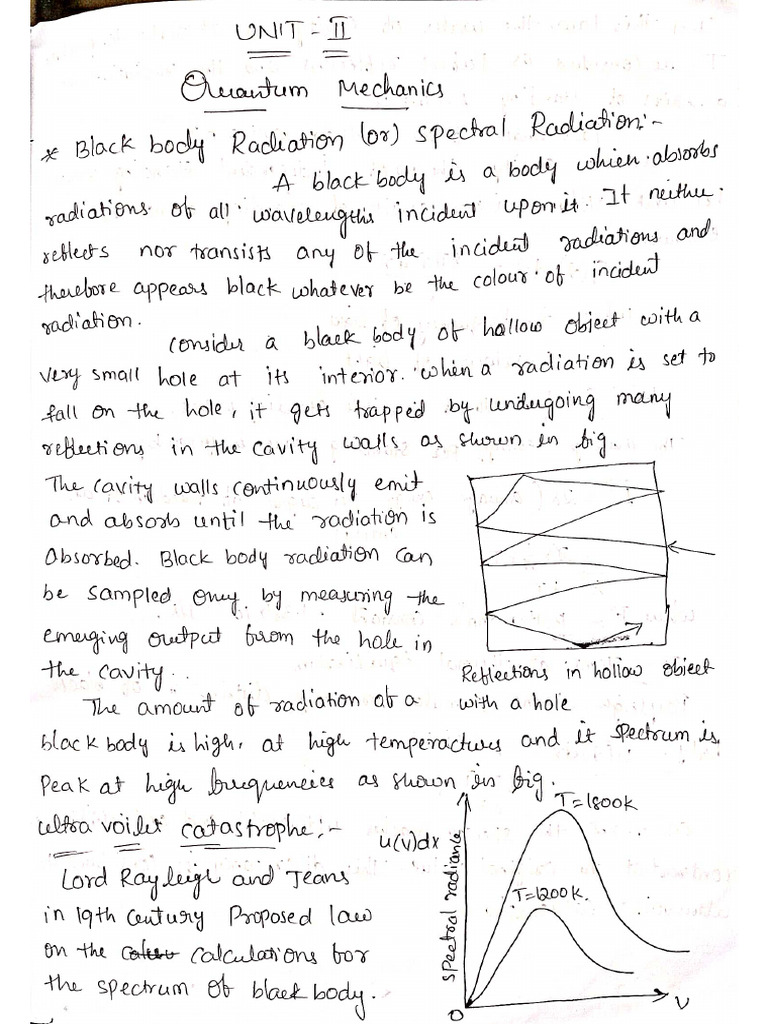 UNIT - II
Quantum Mechanics
* Black body Radiation (or) Spectral Radiation:-
A black body is a body which absorbs
radiations of all wavelengths incident upon it. It neither
reflects nor transists any of the incident radiations and
therefore appears black whatever be the colour of incident
radiation.
Consider a black body of hollow object with a
very small hole at its interior. when a radiation is set to
fall on the hole, it gets trapped by undergoing many
reflections in the cavity walls as shown in fig.
The cavity walls continuously emit
and absorb until the radiation is
absorbed. Black body radiation can
be sampled only by measuring the
emerging output from the hole in
the cavity.
Reflections in hollow object
with a hole
The amount of radiation of a
black body is high, at high temperactures and it spectrum is
peak at high frequencies as shown in fig.
ultra voilet catastrophe:-
Lord Rayleigh and Jeans
in 19th century Proposed law
on the calculations for
the spectrum of black body.
u(v)dx
spectral radiance
T=1800k
T=1200k.
0
ν